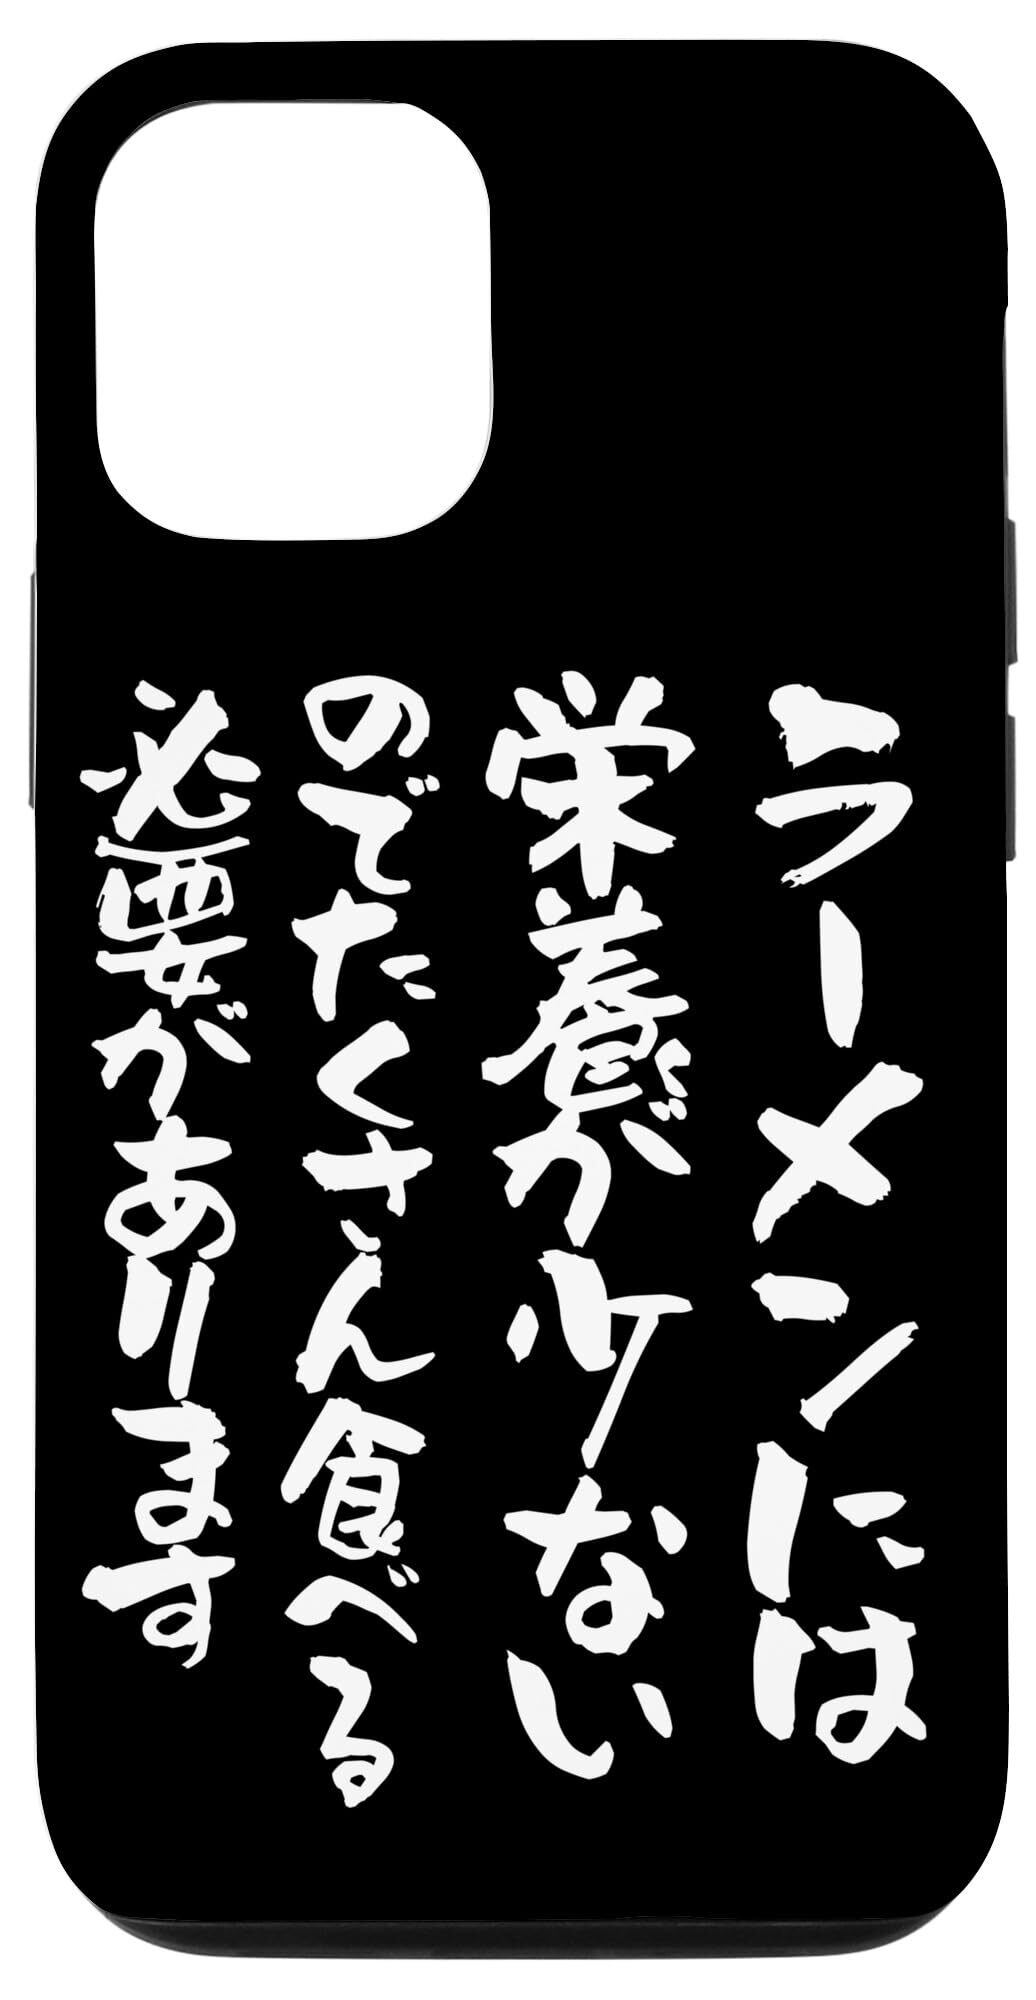 ラーメンには
栄養が少ない
のでたくさん食べる
必要があります